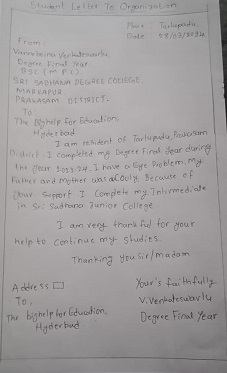 Student Letter To Organization
Place : Tarlupadu,
Date
From:
Vannebaina Venkateswarlu
Degree Final Year
BSC (M P C)
SRI SADHANA DEGREE COLLEGE
MARKAPUR
PRAKASAM DISTRICT.
To
The Bighelp for Education,
Hyderbad.
I am resident of Tarlupadu, Prakasam
District. I completed my Degree Final Year during
the year 2023-24. I have a Eye Problem, my
Father and Mother was a Cooly. Because of
Your Support I Complete my Intermediate
in Sri Sadhana Junior College.
I am very thankful for your
help to Continue my Studies.
Thanking you Sir/madam
Address
Your's faithfully
To,
V.Venkateswarlu
The bighelp for Education,
Degree Final Year
Hyderbad